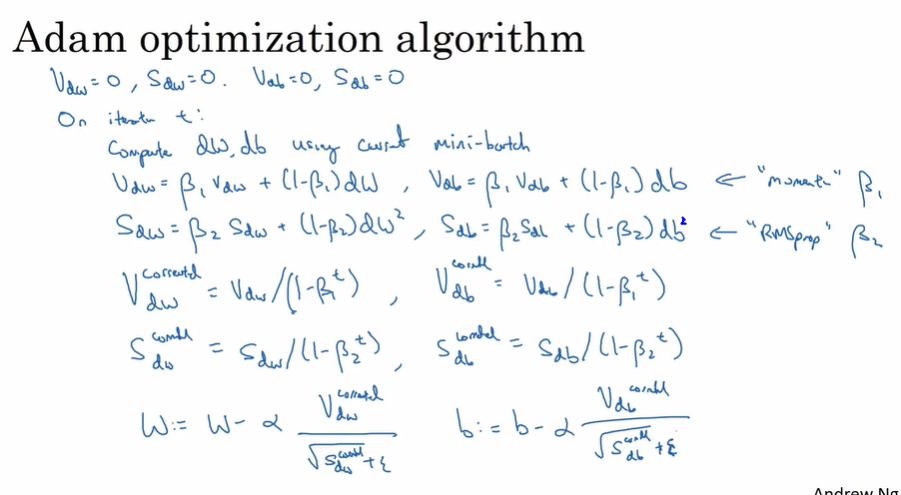 Adam optimization algorithm
V_dw = 0, S_dw = 0. V_db = 0, S_db = 0
On iteration t:
Compute dW, db using current mini-batch
V_dw = β₁ V_dw + (1-β₁) dW, V_db = β₁ V_db + (1-β₁) db ← "momentum" β₁
S_dw = β₂ S_dw + (1-β₂) dW², S_db = β₂ S_db + (1-β₂) db² ← "RMSprop" β₂
V_dw^corrected = V_dw / (1-β₁^t), V_db^corrected = V_db / (1-β₁^t)
S_dw^corrected = S_dw / (1-β₂^t), S_db^corrected = S_db / (1-β₂^t)
W := W - α V_dw^corrected / (√S_dw^corrected + ε) b := b - α V_db^corrected / (√S_db^corrected + ε)
Andrew Ng